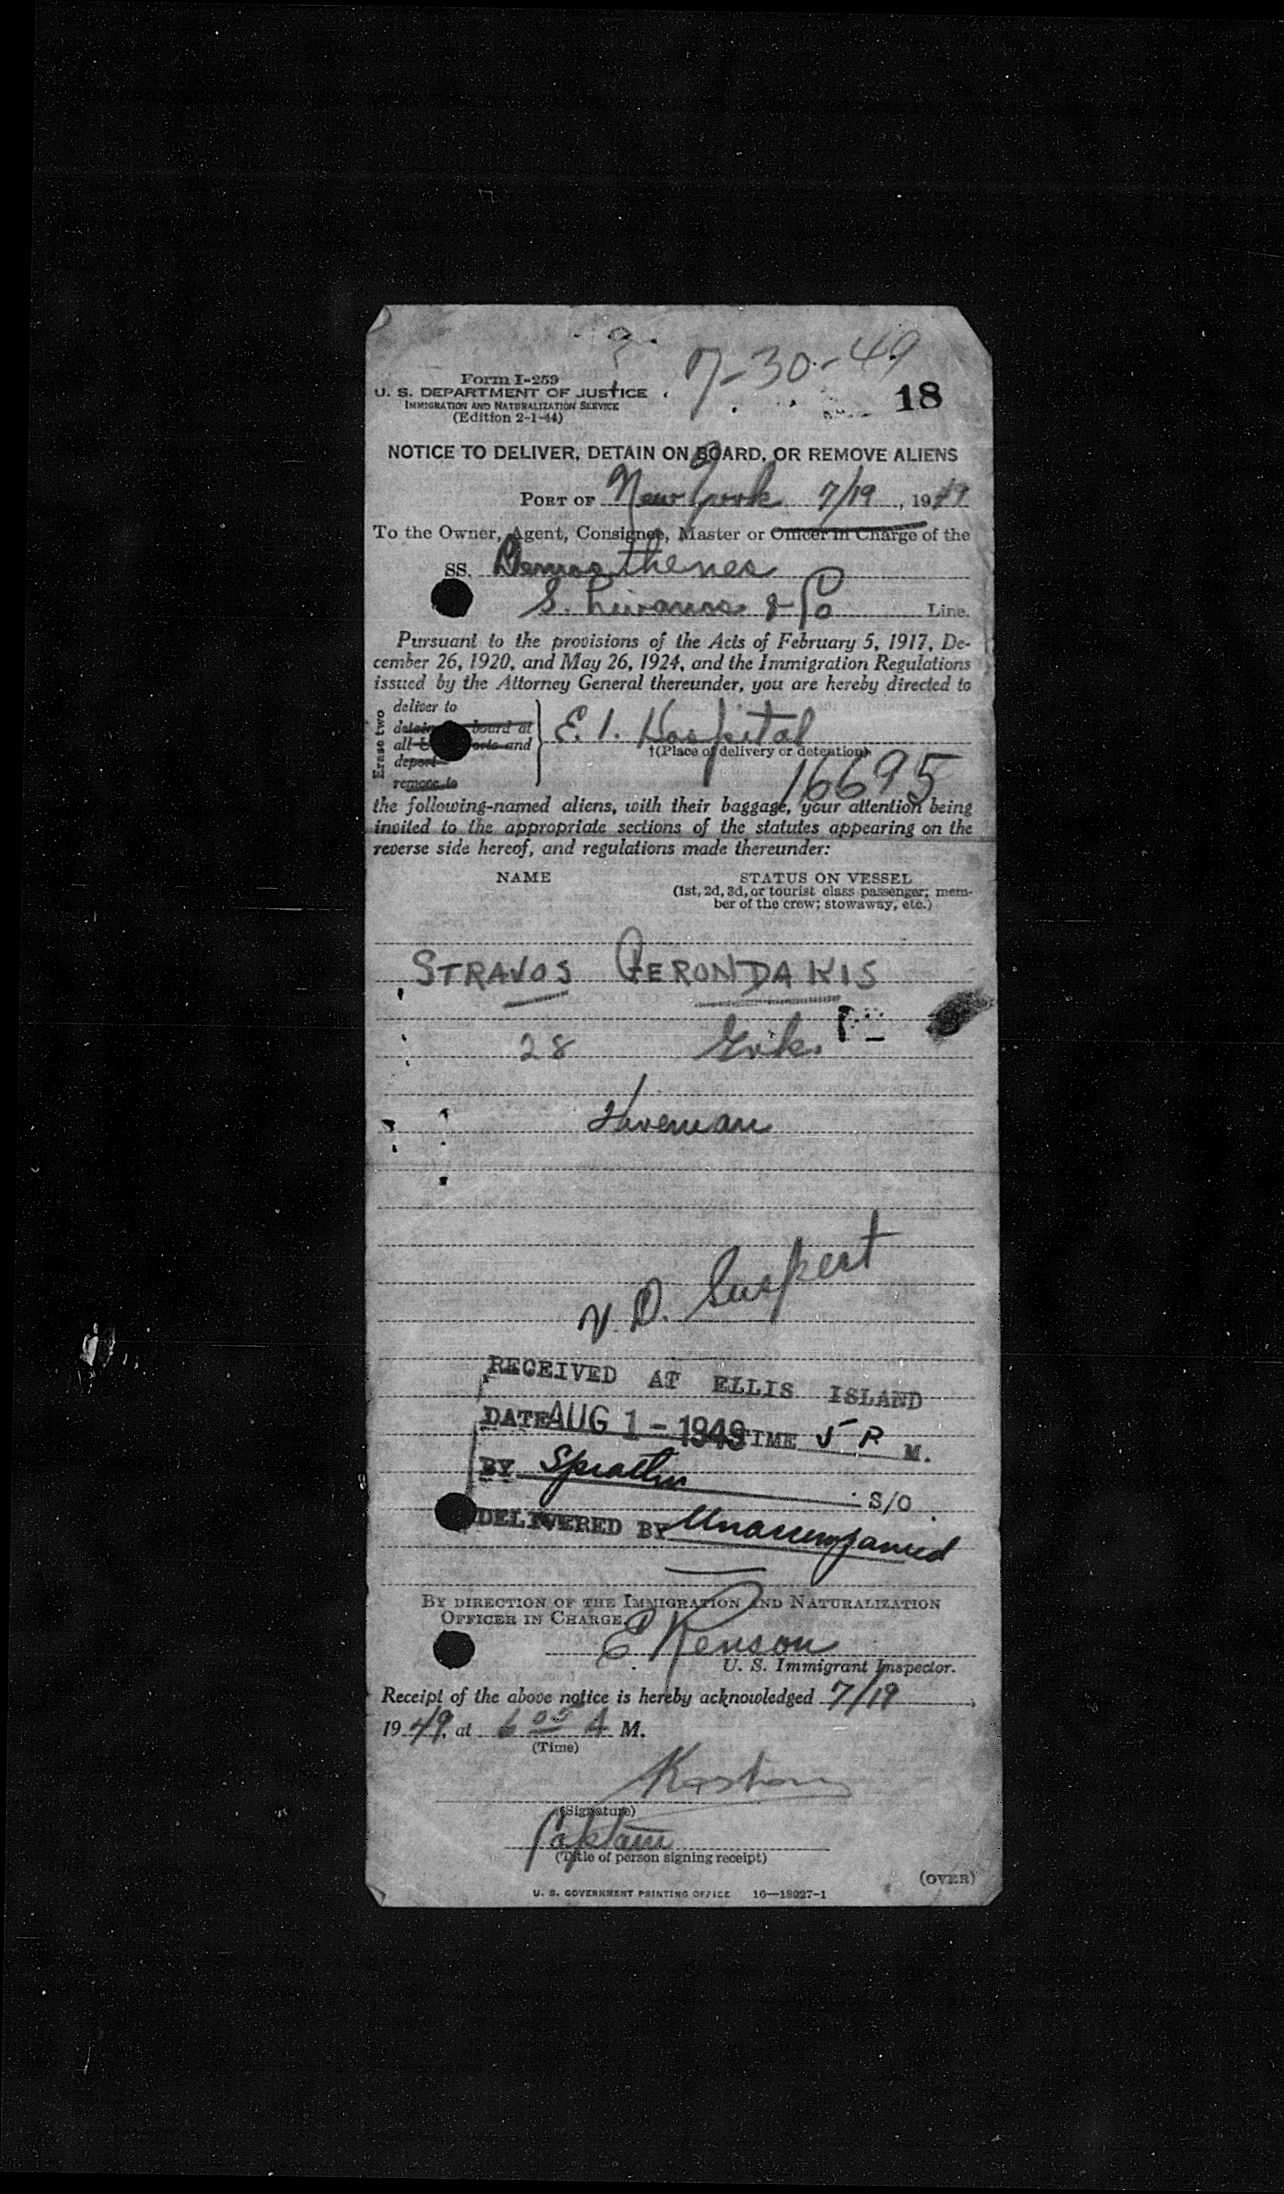 7-30-49
Form I-259
U. S. DEPARTMENT OF JUSTICE
IMMIGRATION AND NATURALIZATION SERVICE
(Edition 2-1-44)
18
NOTICE TO DELIVER, DETAIN ON BOARD, OR REMOVE ALIENS
PORT OF New York 7/19, 1949
To the Owner, Agent, Consignee, Master or Officer in Charge of the
SS. Demosthenes
S. Livanos & Co Line.
Pursuant to the provisions of the Acts of February 5, 1917, De-
cember 26, 1920, and May 26, 1924, and the Immigration Regulations
issued by the Attorney General thereunder, you are hereby directed to
Erase two
deliver to
detain board at
all and
deport
remove to
E. I. Hospital
†(Place of delivery or detention)
16695
the following-named aliens, with their baggage, your attention being
invited to the appropriate sections of the statutes appearing on the
reverse side hereof, and regulations made thereunder:
NAME STATUS ON VESSEL
(1st, 2d, 3d, or tourist class passenger; mem-
ber of the crew; stowaway, etc.)
STRAVOS GERONDAKIS
28 Grk.
Fireman
V. D. Suspect
RECEIVED AT ELLIS ISLAND
DATE AUG 1 - 1949 TIME 5 P M.
BY S/O
DELIVERED BY Unaccompanied
BY DIRECTION OF THE IMMIGRATION AND NATURALIZATION
OFFICER IN CHARGE.
E Kenson
U. S. Immigrant Inspector.
Receipt of the above notice is hereby acknowledged 7/19,
1949, at 6 05 A M.
(Time)
(Signature)
Captain
(Title of person signing receipt)
(OVER)
U. S. GOVERNMENT PRINTING OFFICE 16—18027-1